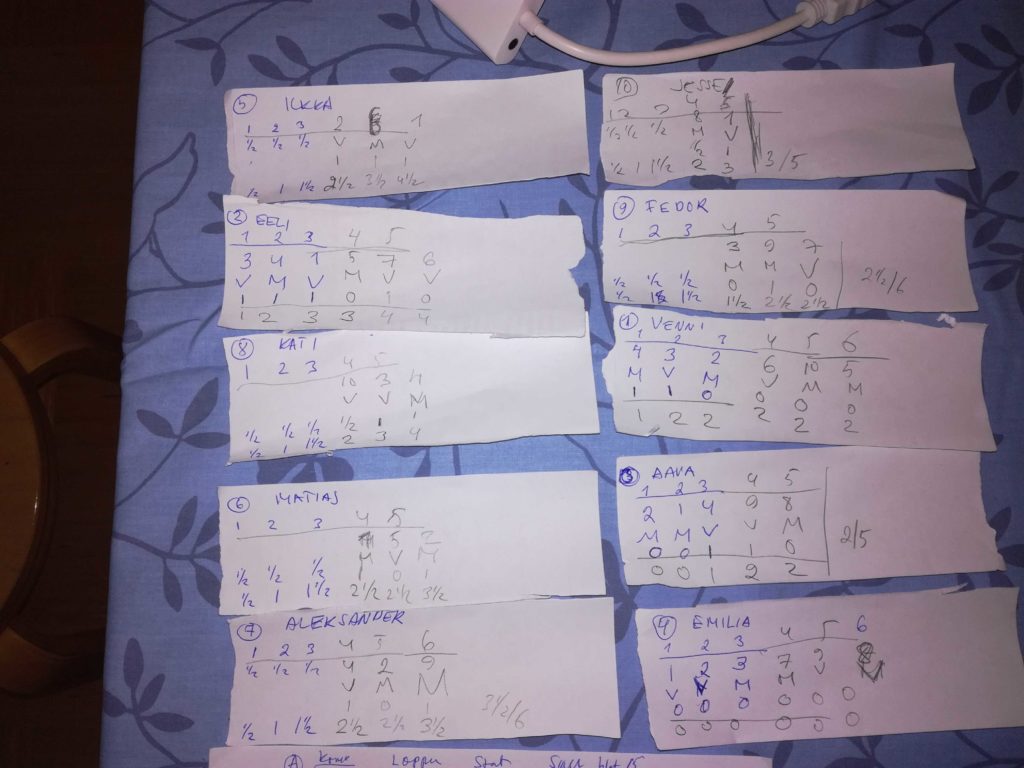 5 ILKKA
1 2 3 2 1
½ ½ ½ V M V
1 1 1
½ 1 1½ 2½ 3½ 4½
2 EELI
1 2 3 4 5
3 4 1 5 7 6
V M V M V V
1 1 1 0 1 0
1 2 3 3 4 4
8 KATI
1 2 3 4 5
10 3 4
V V M
½ ½ ½ ½ 1 1
½ 1 1½ 2 3 4
6 MATIAS
1 2 3 4 5
5 2
M V M
½ ½ ½ 1 0 1
½ 1 1½ 2½ 2½ 3½
7 ALEKSANDER
1 2 3 4 5 6
½ ½ ½ 4 2 9
V M M
1 0 1
½ 1 1½ 2½ 2½ 3½
3½/6
10 JESSE
4 5
1 2 2 8 1
½ ½ ½ M V
½ 1 1½ 2 3
3/5
9 FEDOR
1 2 3 4 5
3 9 7
M M V
½ ½ ½ 0 1 0
½ 1½ 1½ 1½ 2½ 2½
2½/6
1 VENNI
1 2 3 4 5 6
4 3 2 6 10 5
M V M V M M
1 1 0 0 0 0
1 2 2 2 2 2
3 AAVA
1 2 3 4 5
2 1 4 9 8
M M V V M
0 0 1 1 0
0 0 1 2 2
2/5
4 EMILIA
1 2 3 4 5 6
1 2 3 7 9
V M M V
0 0 0 0 0 0
0 0 0 0 0 0
A